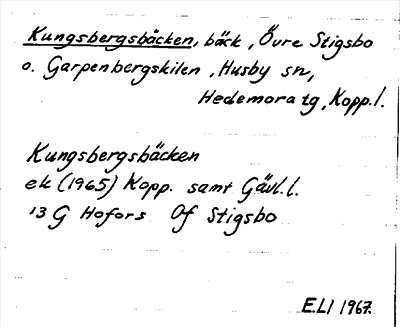 Kungsbergsbäcken, bäck, Övre Stigsbo
o. Garpenbergskilen, Husby sn,
Hedemora tg, Kopp. l.
Kungsbergsbäcken
ek (1965) Kopp. samt Gävl. l.
13 G Hofors Öf Stigsbo
E.LI 1967.